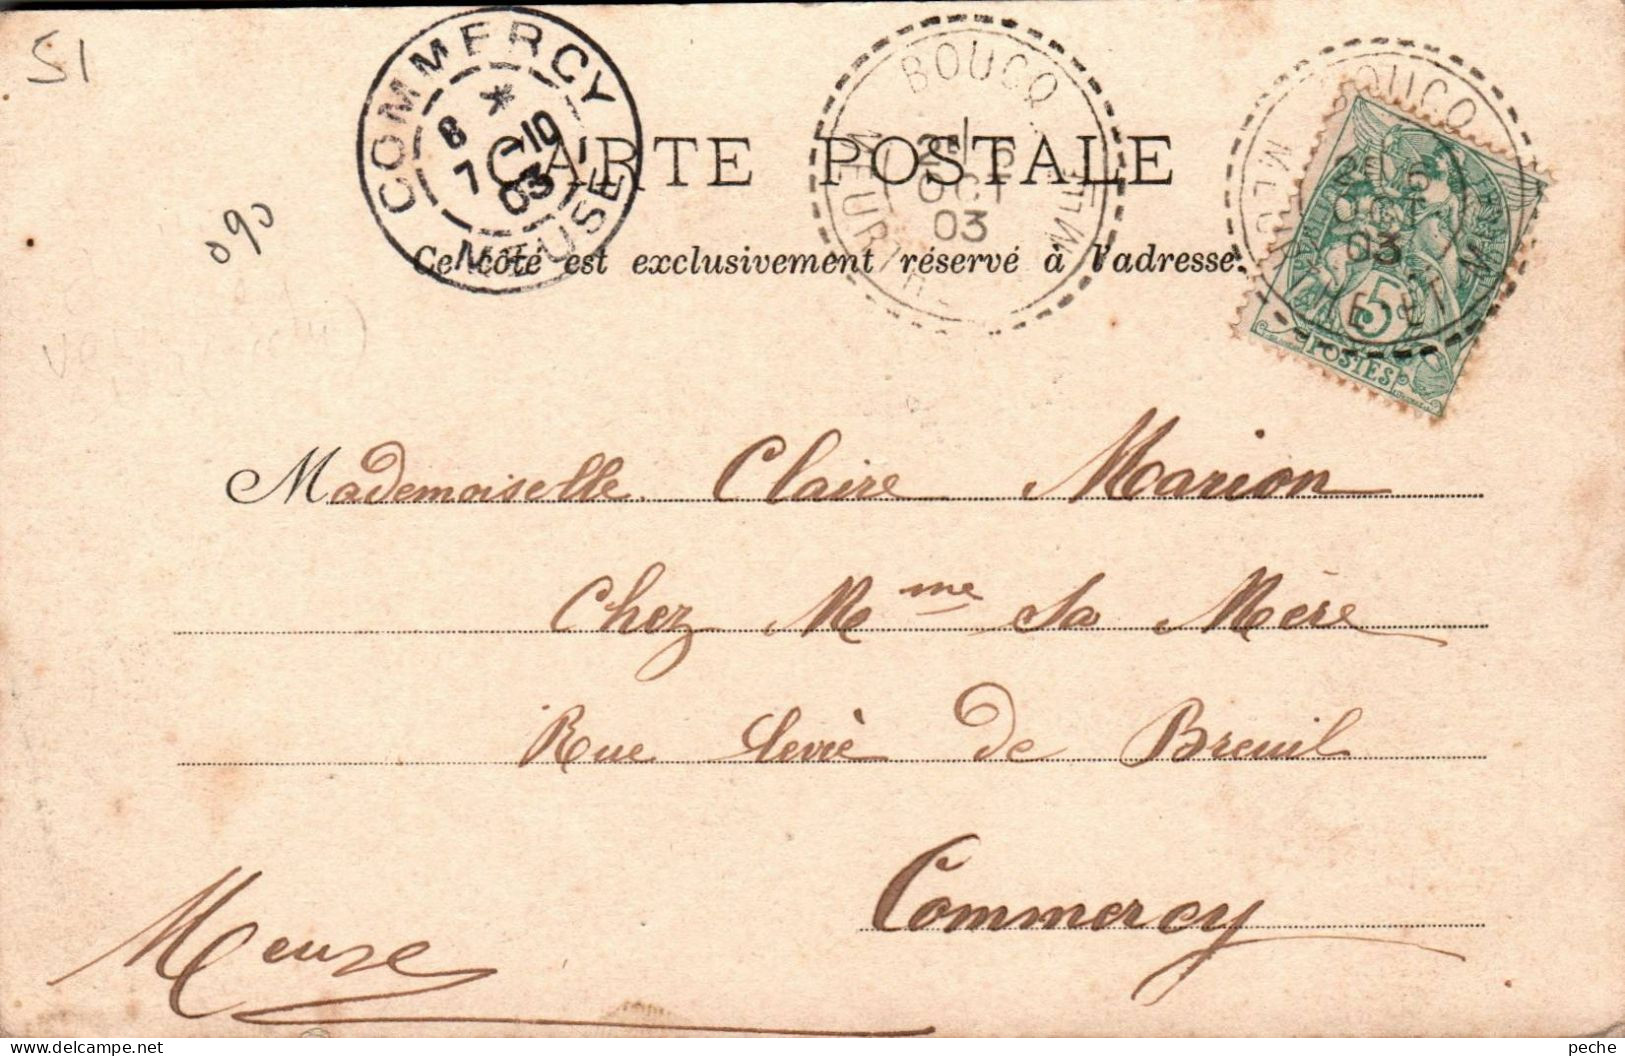 51
COMMERCY
*
8
7 -10
03
MEUSE
BOUCQ
OCT
03
MEUR
BOUCQ
25
OCT
03
MEURTHE ET M
5
POSTES
090
CARTE POSTALE
Ce côté est exclusivement réservé à l'adresse.
Mademoiselle Claire Marion
Chez Mme Sa Mère
Rue Levée de Breuil
Commercy
Meuse
peche